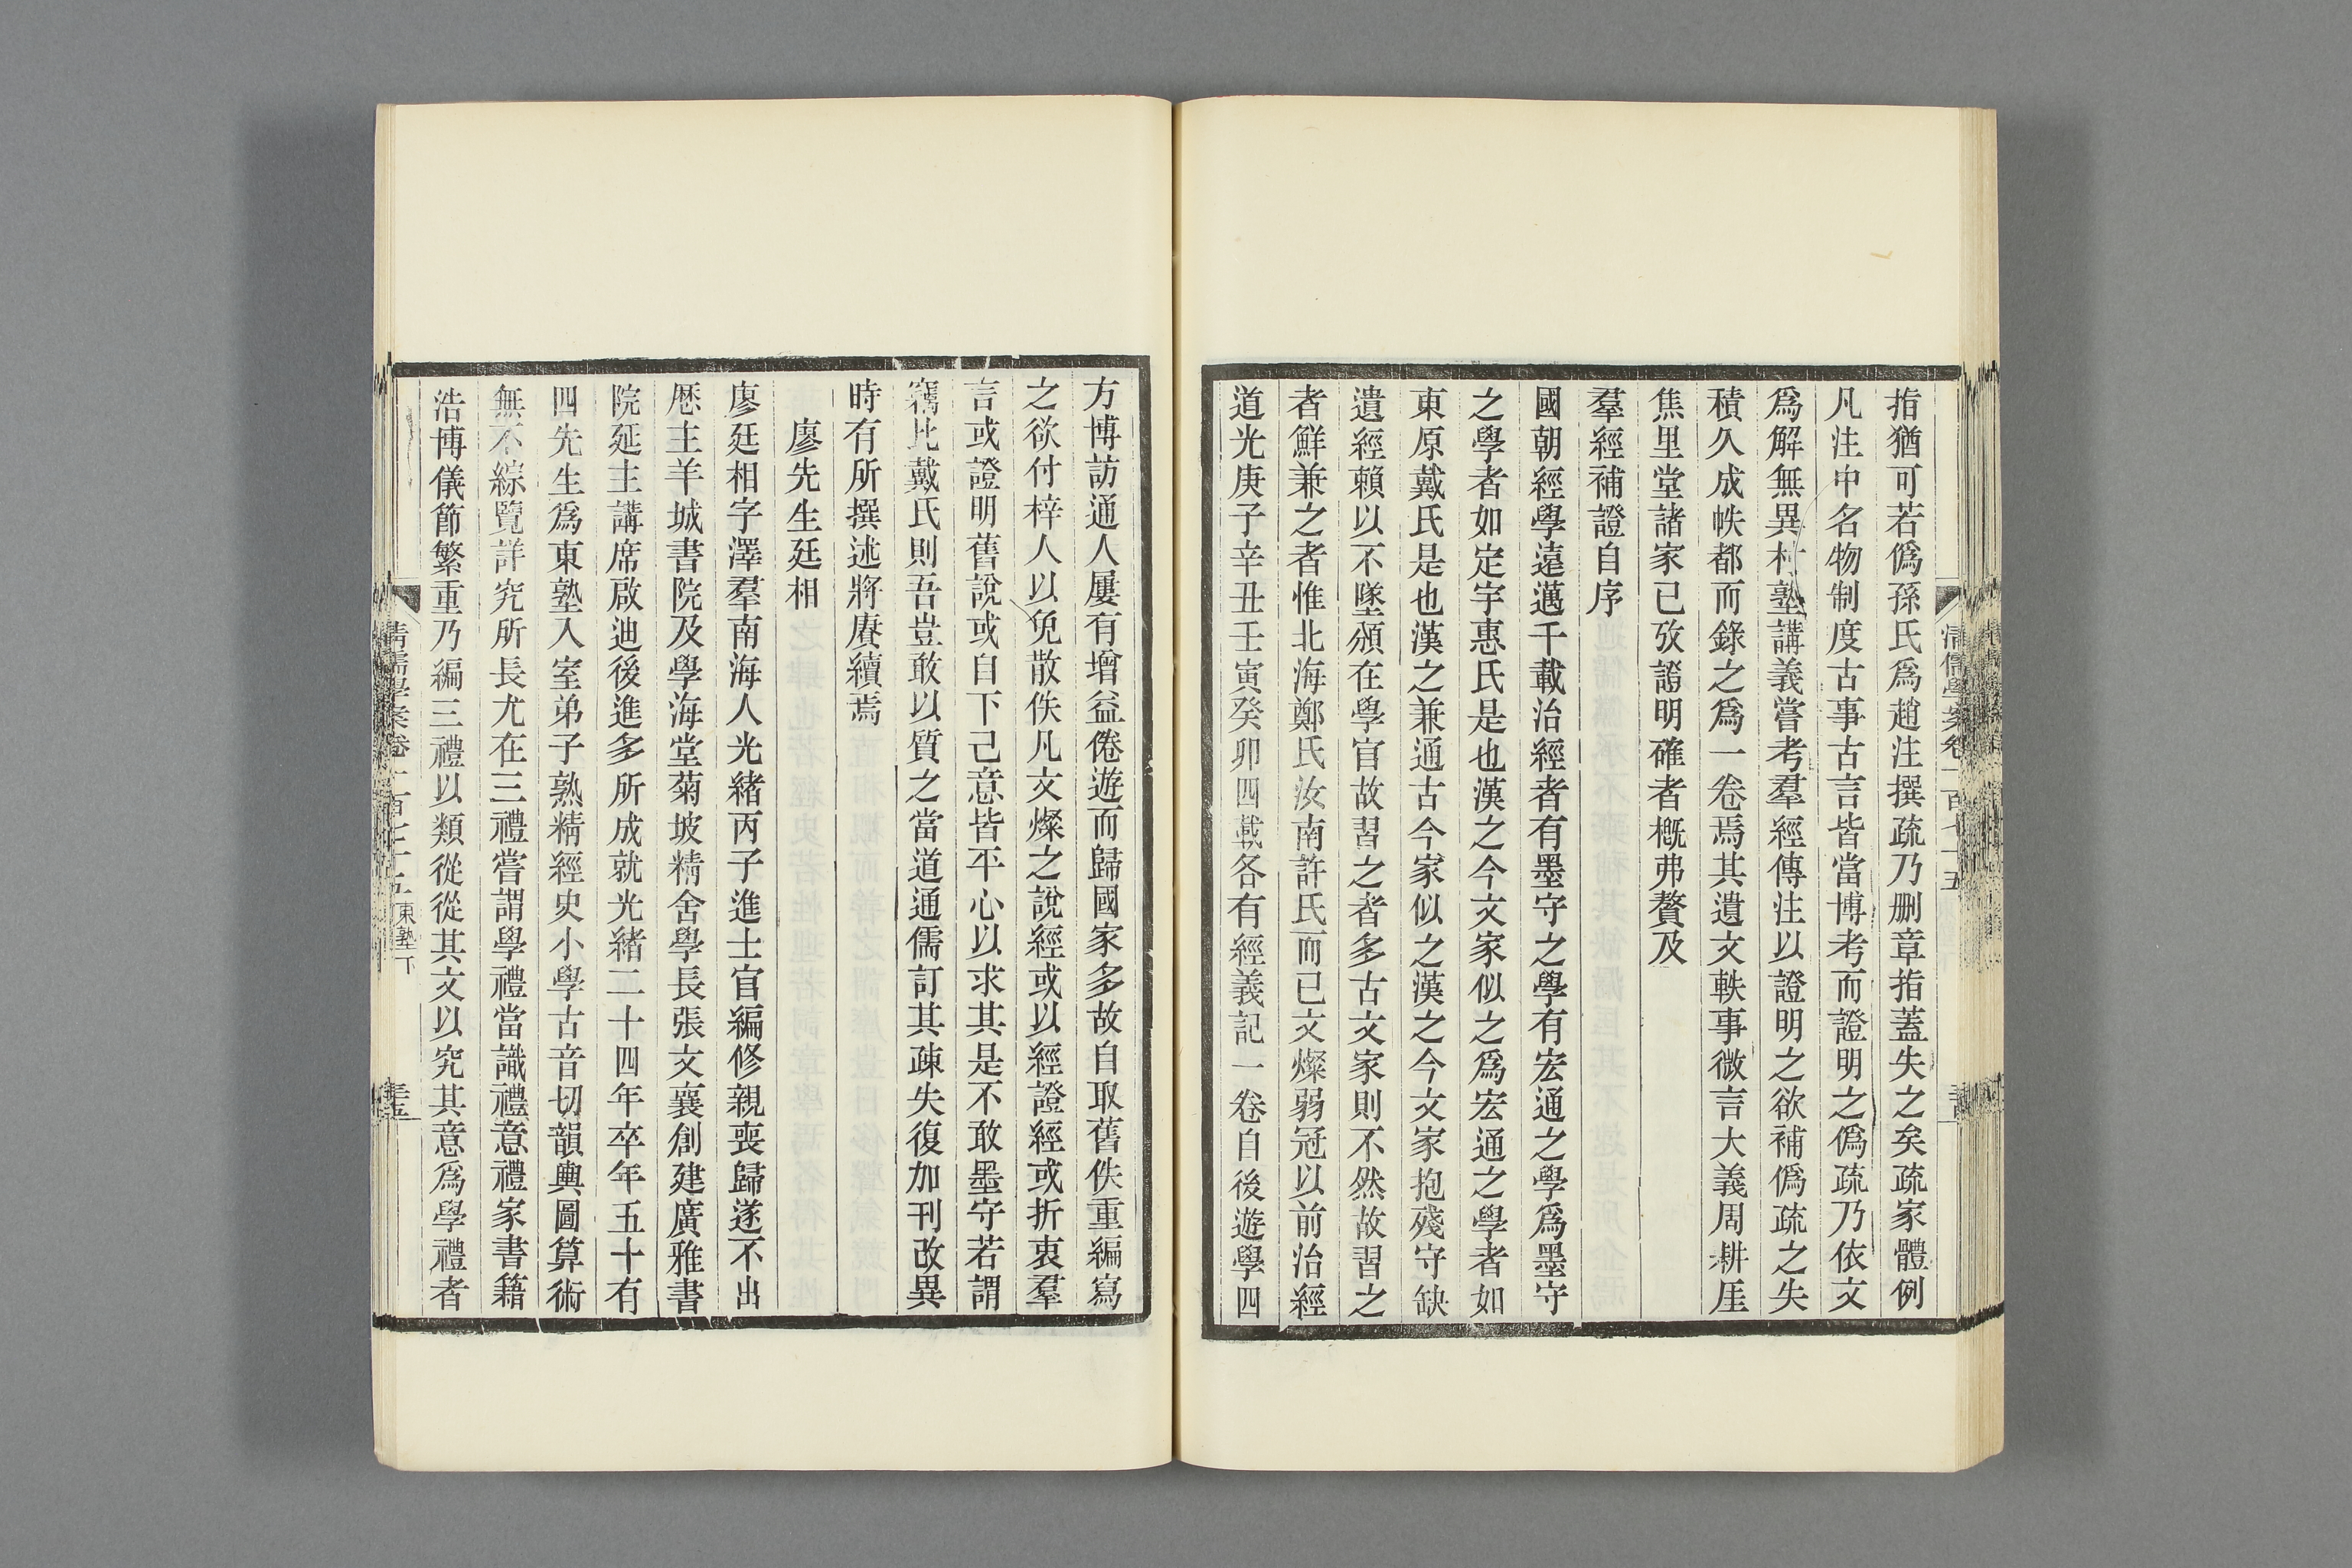 指猶可若僞孫氏爲趙注撰疏乃刪章指蓋失之矣疏家體例
凡注中名物制度古事古言皆當博考而證明之僞疏乃依文
爲解無異村塾講義嘗考羣經傳注以證明之欲補僞疏之失
積久成帙都而錄之爲一卷焉其遺文軼事微言大義周耕厓
焦里堂諸家已攷證明確者槪弗贅及
羣經補證自序
國朝經學遠邁千載治經者有墨守之學有宏通之學爲墨守
之學者如定宇惠氏是也漢之今文家似之爲宏通之學者如
東原戴氏是也漢之兼通古今家似之漢之今文家抱殘守缺
遺經賴以不墜頒在學官故習之者多古文家則不然故習之
者鮮兼之者惟北海鄭氏汝南許氏而已文燦弱冠以前治經
道光庚子辛丑壬寅癸卯四載各有經義記一卷自後遊學四
方博訪通人屢有增益倦遊而歸國家多故自取舊佚重編寫
之欲付梓人以免散佚凡文燦之說經或以經證經或折衷羣
言或證明舊說或自下己意皆平心以求其是不敢墨守若謂
竊比戴氏則吾豈敢以質之當道通儒訂其疎失復加刊改異
時有所撰述將賡續焉
廖先生廷相
廖廷相字澤羣南海人光緒丙子進士官編修親喪歸遂不出
歷主羊城書院及學海堂菊坡精舍學長張文襄創建廣雅書
院延主講席啟迪後進多所成就光緒二十四年卒年五十有
四先生爲東塾入室弟子熟精經史小學古音切韻輿圖算術
無不綜覽詳究所長尤在三禮嘗謂學禮當識禮意禮家書籍
浩博儀節繁重乃編三禮以類從從其文以究其意爲學禮者
清儒學案卷一百七十五 東塾下